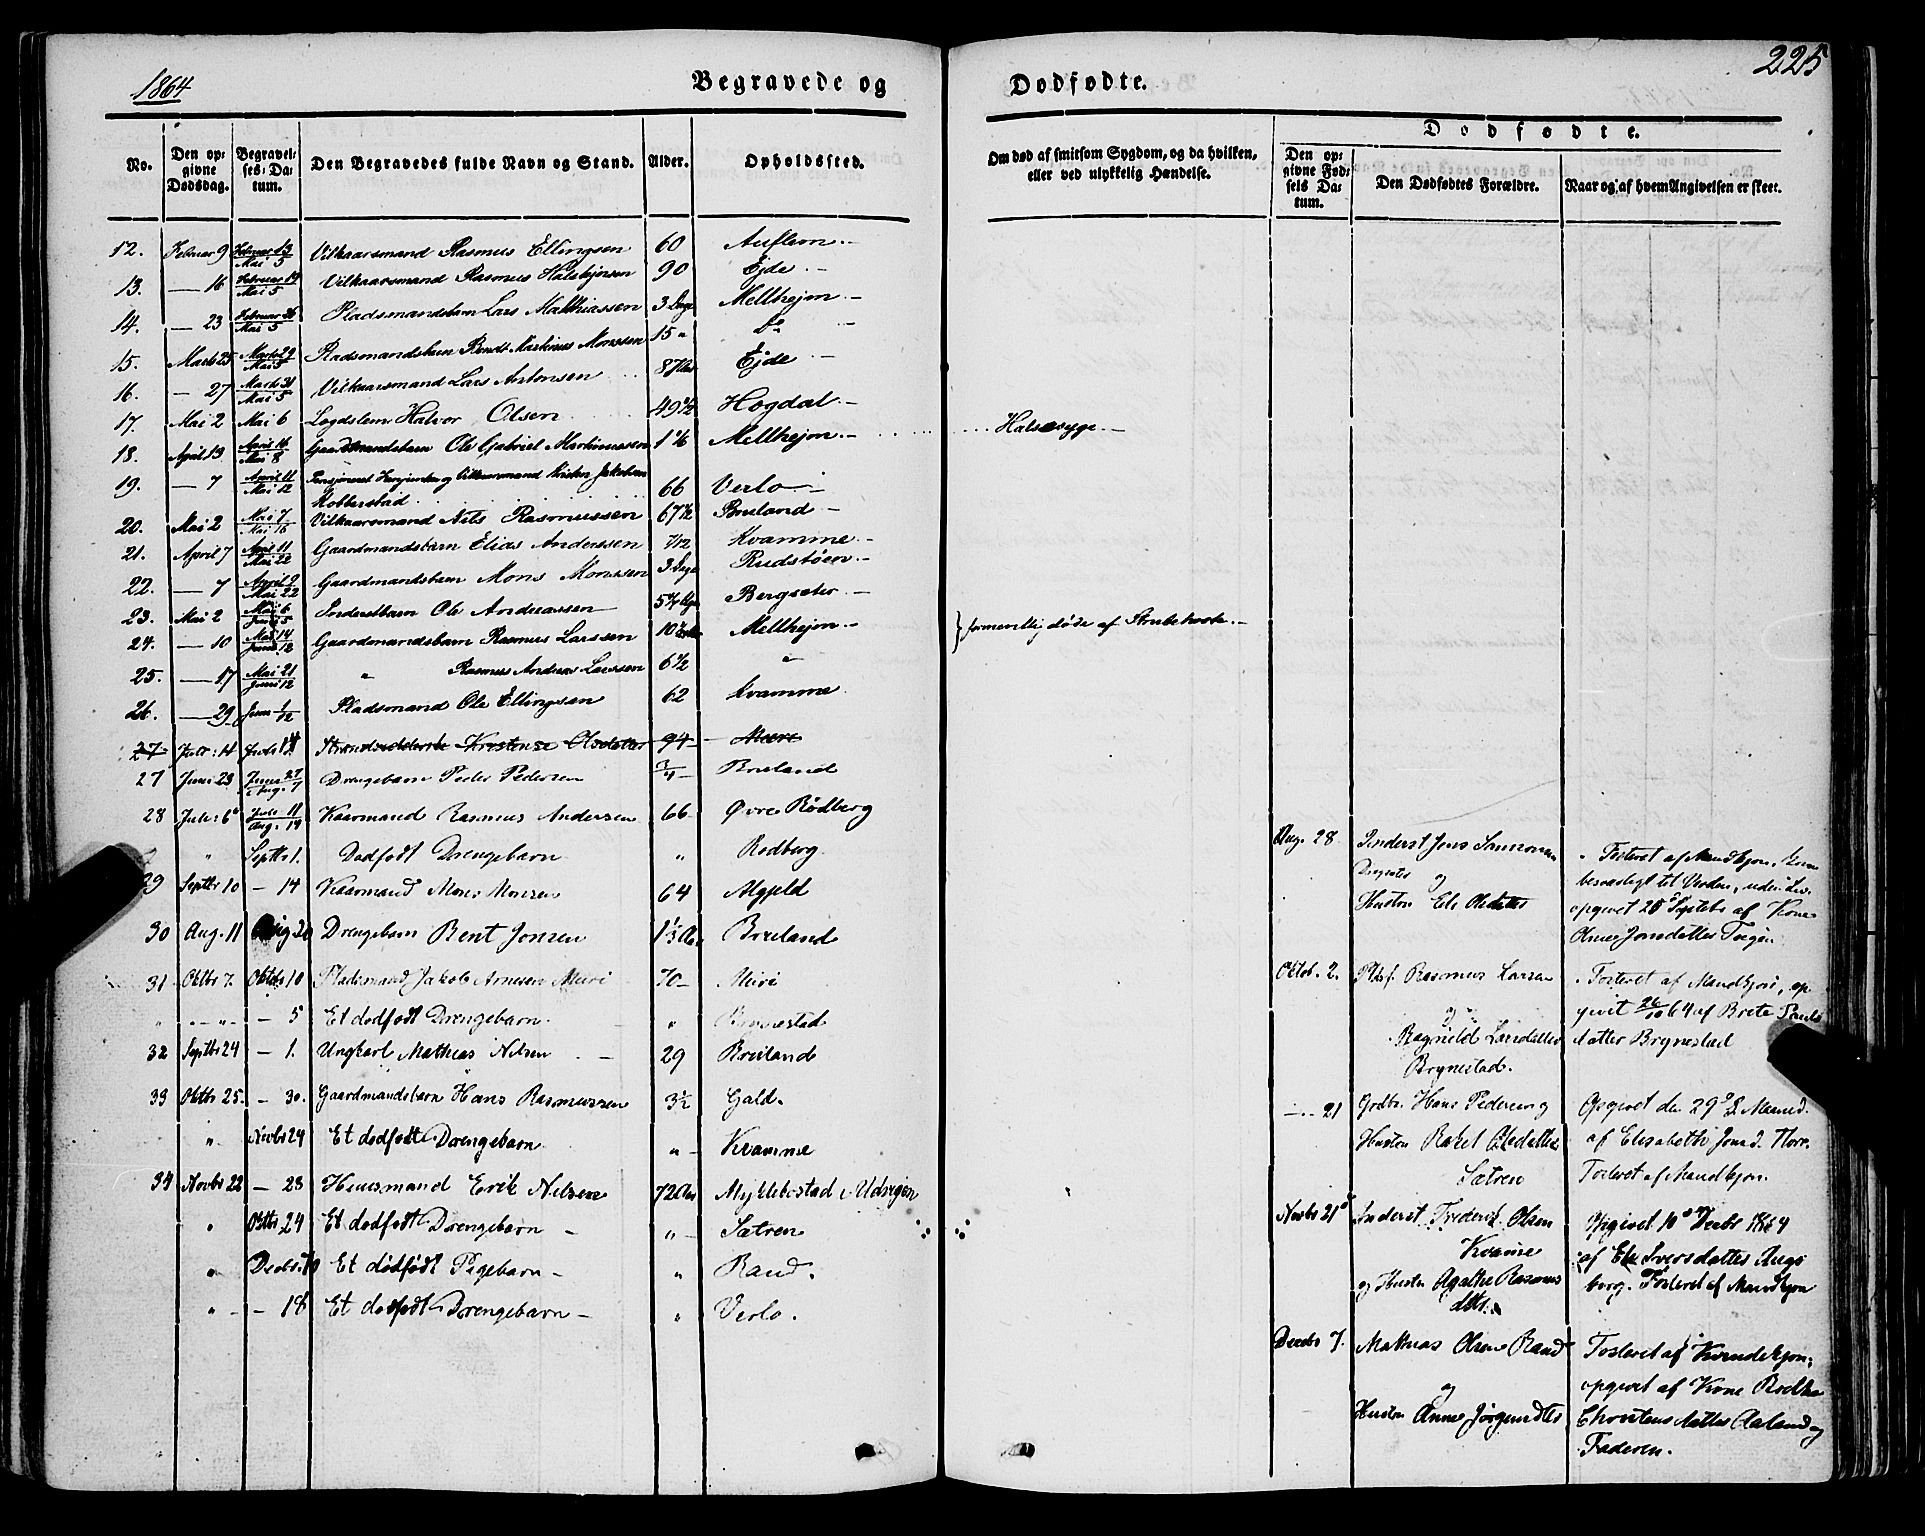 1864
Begravede og
Dødfødte.
225
No.
Den opgivne Dødsdag.
Begravelses-Datum.
Den Begravedes fulde Navn og Stand.
Alder.
Opholdssted.
Om død af smitsom Sygdom, og da hvilken, eller ved ulykkelig Hændelse.
Dødfødte.
Den opgivne Fødsels Datum.
Den Dødfødtes Forældre.
Naar og af hvem Angivelsen er skeet.
12. Februar 9 Februar 13 Mai 5 Vilkaarsmand Rasmus Ellingsen 60 Auflem
13. — 16 Februar 19 Mai 5 Vilkaarsmand Rasmus 90 Ejde
14. — 23 Februar 26 Mai 5 Pladsmandsbarn Lars Matthiassen 3 Dage Mellhejm
15. Marts 25 Marts 29 Mai 5 Pladsmandsbarn Bendt Martinus Monssen 15 " Do
16. — 27 Marts 31 Mai 5 Vilkaarsmand Lars Antonsen 87 Ejde
17. Mai 2 Mai 6 Logdslem Halvor Olsen 49 1/2 Hogdal
18. April 13 April 16 Mai 8 Gaardmandsbarn Ole Gabriel Martinussen Mellhejm Halssyge
19. — 7 April 11 Mai 12 Pensioneret og Vilkaarsmand Kristen Jakobsen
Kobberstad 66 Verlo
20. Mai 2 Mai 7 Mai 16 Vilkaarsmand Nils Rasmussen 67 1/2 Breland
21. April 7 April 11 Mai 22 Gaardmandsbarn Elias Anderssen 7/12 Kvamme
22. — 7 April 9 Mai 22 Gaardmandsbarn Mons Monssen 3 Dage Rudstøen
23. Mai 2 Mai 6 Juni 5 Inderstbarn Ole Anderassen Bergseter
24. — 10 Mai 14 Juni 12 Gaardmandsbarn Rasmus Larssen Mellhejm } formentlig døde af Strubehoste
25. — 17 Mai 21 Juni 12 " Rasmus Andreas Larssen 6 1/2 "
26. — 29 Juni 1/12 Pladsmand Ole Ellingsen 62 Kvamme
27 Juli 11 Juli 14 Kristense Olsdatter 94 Muri
27 Juni 23 Juni 27 Aug. 7 Drengebarn Peder Pedersen 3/4 Breland
28 Juli 6 Juli 11 Aug. 14 Kaarmand Rasmus Andersen 66 Øvre Rødberg
" Septbr 1. Dødfødt Drengebarn " Rødberg
29 Septbr 10 — 14 Kaarmand Mons Monsen 64 Mgjeld
30 Aug. 11 Aug 20 Drengebarn Bent Jonsen Breland
31 Oktbr 7. Oktbr 10 Pladsmand Jakob Arnesen Muri 70 Muri
" " — 5 Et dødfødt Drengebarn " Brynestad
32 Septbr 24 — 1. Ungkarl Mathias Nilsen 29 Breiland
33 Oktbr 25. — 30. Gaardmandsbarn Hans Rasmussen 3 1/2 Gald
" Novbr 24 Et dødfødt Drengebarn " Kvamme
34 Novbr 22 — 28 Huusmand Erik Nilsen 72 Aar Myklebostad
" Oktbr 24 Et dødfødt Drengebarn " Sætren
" Decbr. 10 Et dødfødt Pigebarn " Rand.
" — 18 Et dødfødt Drengebarn " Verlo.
Aug. 28 Inderst Jens
og
Hustru Eli Olsdatter
Fosteret af Mandkjøn,
til Verden, uden Liv
opgivet 25 Septbr af Kone
Jonsdatter
Oktob. 2. Pldsf. Rasmus Larsen
og
Ragnild Larsdatter
Brynestad.
Fosteret af Mandkjøn, op-
givet 26/10 64 af Brete Pauls
datter Brynestad
— 21 Hans Pedersen og
Hustru Rakel Olsdatter
Sætren
Opgivet den 29 s. Maaned.
af Elisabeth Jonsd.
Fosteret af Mandkjøn.
Novbr 21 Inderst Frederik Olsen
Kvamme
og Hustru Agathe Rasmus
dtr.
Opgivet 10 Decbr 1864
af Sversdatter
Fosteret af Mandkjøn
Decbr 7. Mathias Olsen Rand
og
Hustru Anne Jørgensdtr
Fosteret af Kvindekjøn,
opgivet af Kone
datter Aaland og
Faderen.